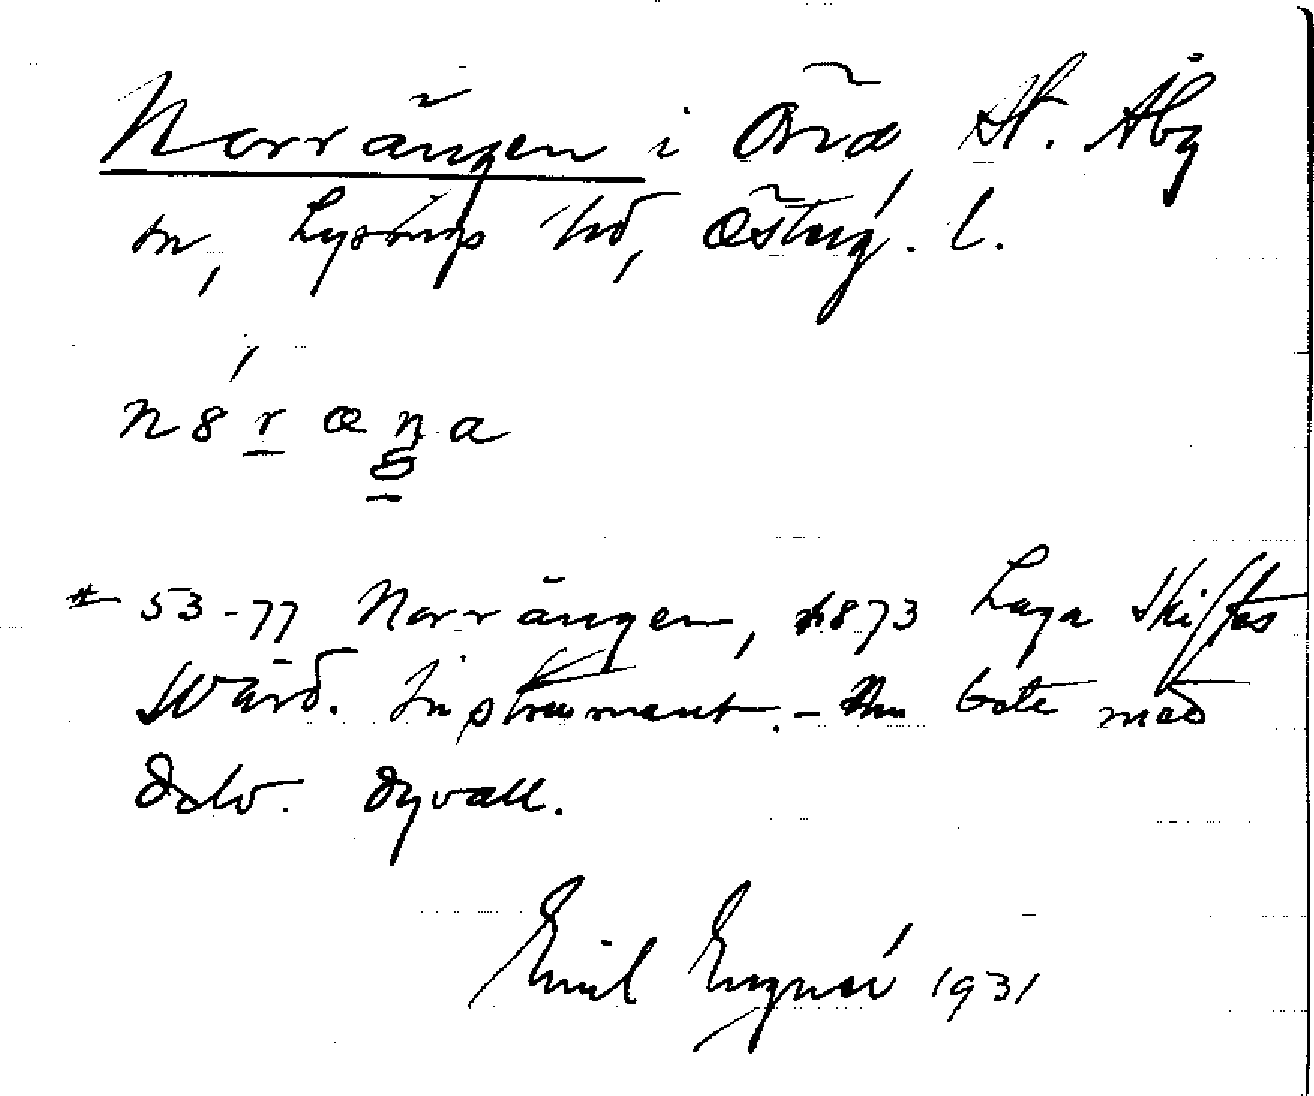 Norrängen i Öna, St. Åby
sn, Lysings hd, Österg. l.
n 8 r æ n a
g
* 53-77 Norrängen, 1873 Laga Skiftes
Värd. Instrument. - Nu bete med
delv. dyvall.
Emil Engnér 1931